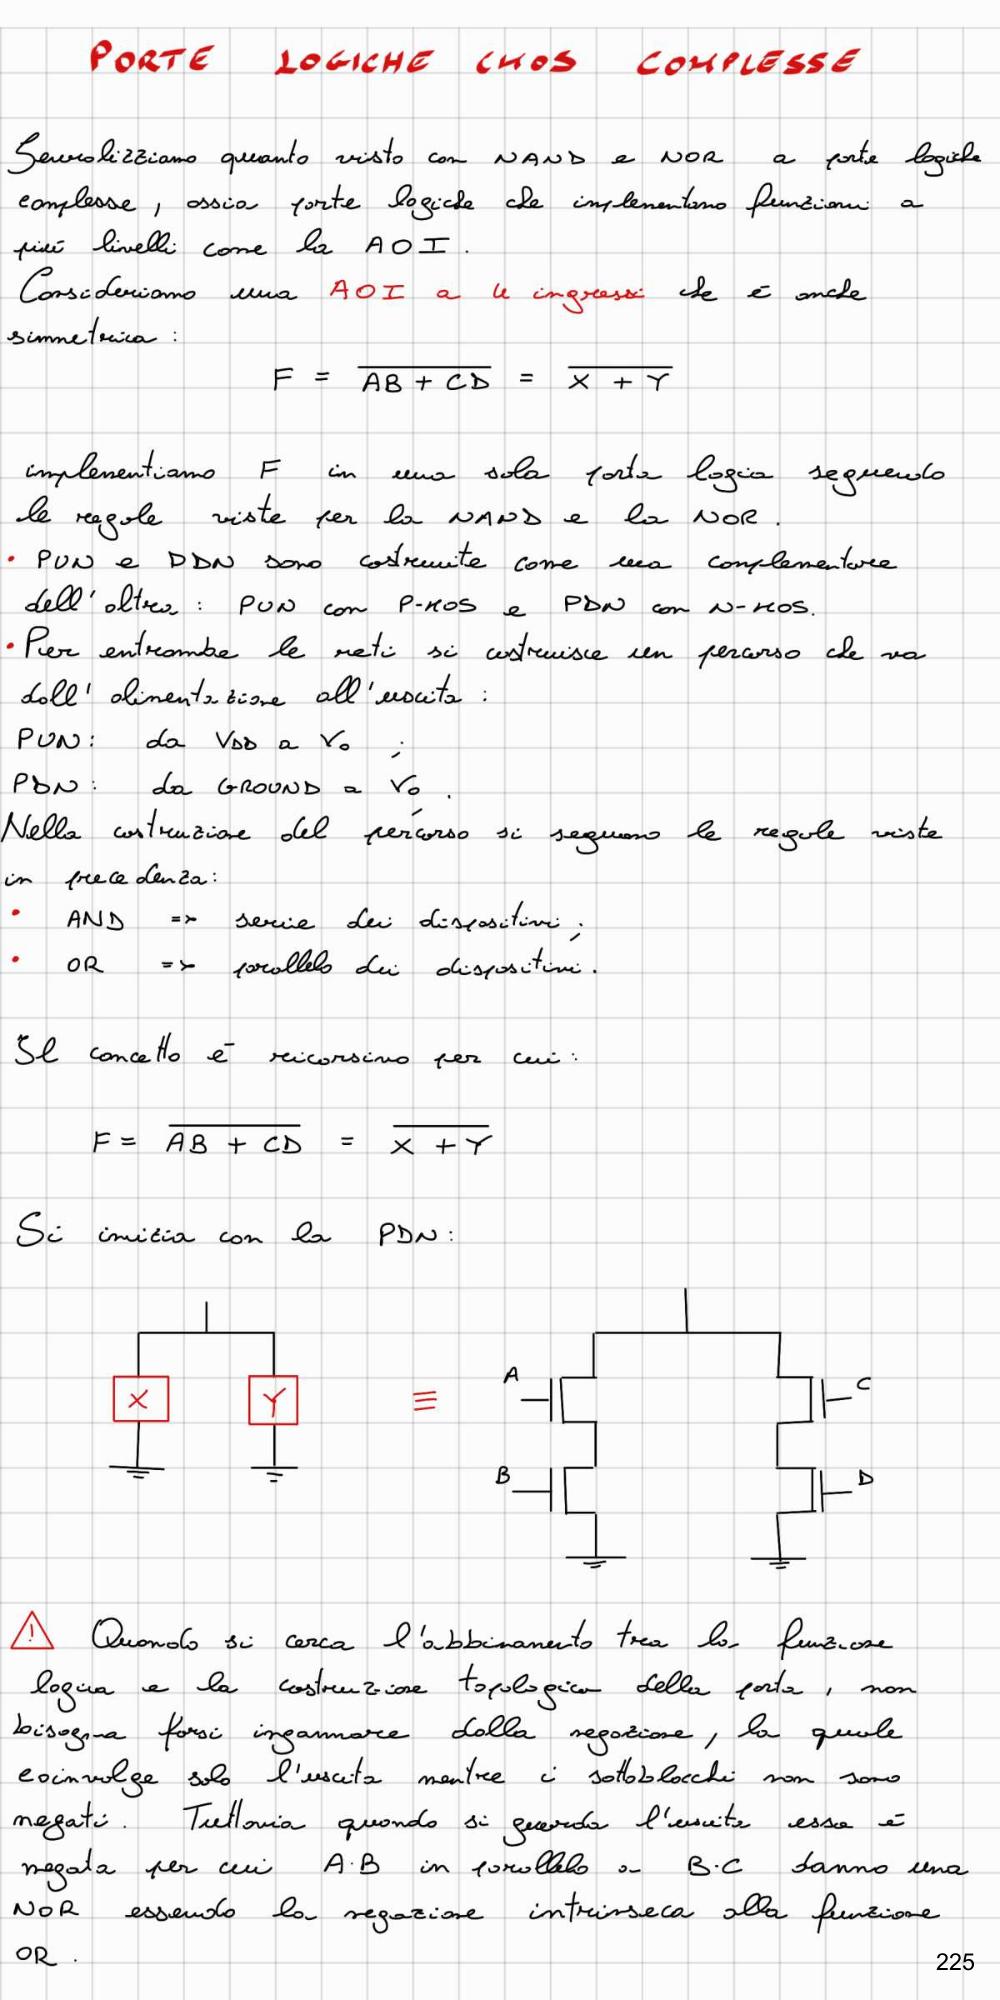 PORTE LOGICHE CMOS COMPLESSE
Generalizziamo quanto visto con NAND e NOR a porte logiche
complesse, ossia porte logiche che implementano funzioni a
più livelli come la AOI.
Consideriamo una AOI a 4 ingressi che è anche
simmetrica :
F = \overline{AB + CD} = \overline{X + Y}
implementiamo F in una sola porta logica seguendo
le regole viste per la NAND e la NOR .
• PUN e PDN sono costruite come una complementare
dell'altra : PUN con P-MOS e PDN con N-MOS.
• Per entrambe le reti si costruisce un percorso che va
dall'alimentazione all'uscita :
PUN : da VDD a Vo ;
PDN : da GROUND a Vo .
Nella costruzione del percorso si seguono le regole viste
in precedenza :
• AND => serie dei dispositivi ;
• OR => parallelo dei dispositivi .
Il concetto è ricorsivo per cui :
F = \overline{AB + CD} = \overline{X + Y}
Si inizia con la PDN :
X Y ≡ A C
B D
⚠ Quando si cerca l'abbinamento tra la funzione
logica e la costruzione topologica della porta , non
bisogna farsi ingannare dalla negazione, la quale
coinvolge solo l'uscita mentre i sottoblocchi non sono
negati. Tuttavia quando si guarda l'uscita essa è
negata per cui A·B in parallelo a B·C danno una
NOR essendo la negazione intrinseca alla funzione
OR .
225